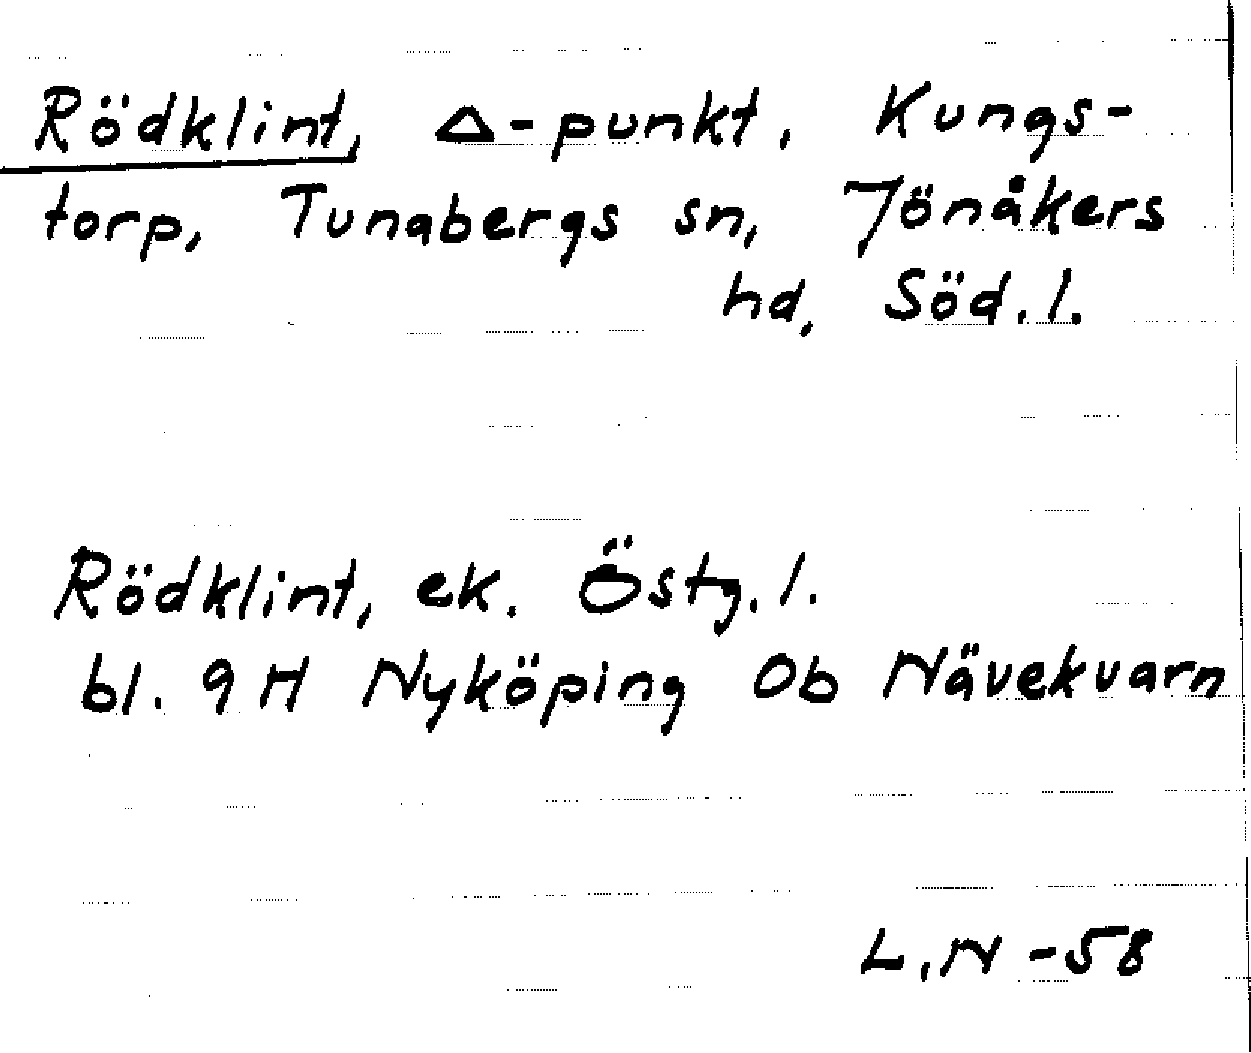 Rödklint, Δ-punkt, Kungs-
torp, Tunabergs sn, Jönåkers
hd, Söd.l.
Rödklint, ek. Östg.l.
bl. 9H Nyköping 0b Nävekvarn
L.N -58